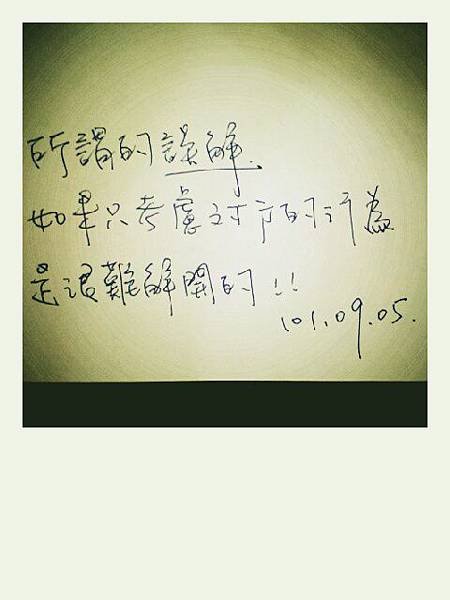 所謂的誤解.
如果只考慮对方的行為
是很難解開的!!
101.09.05.